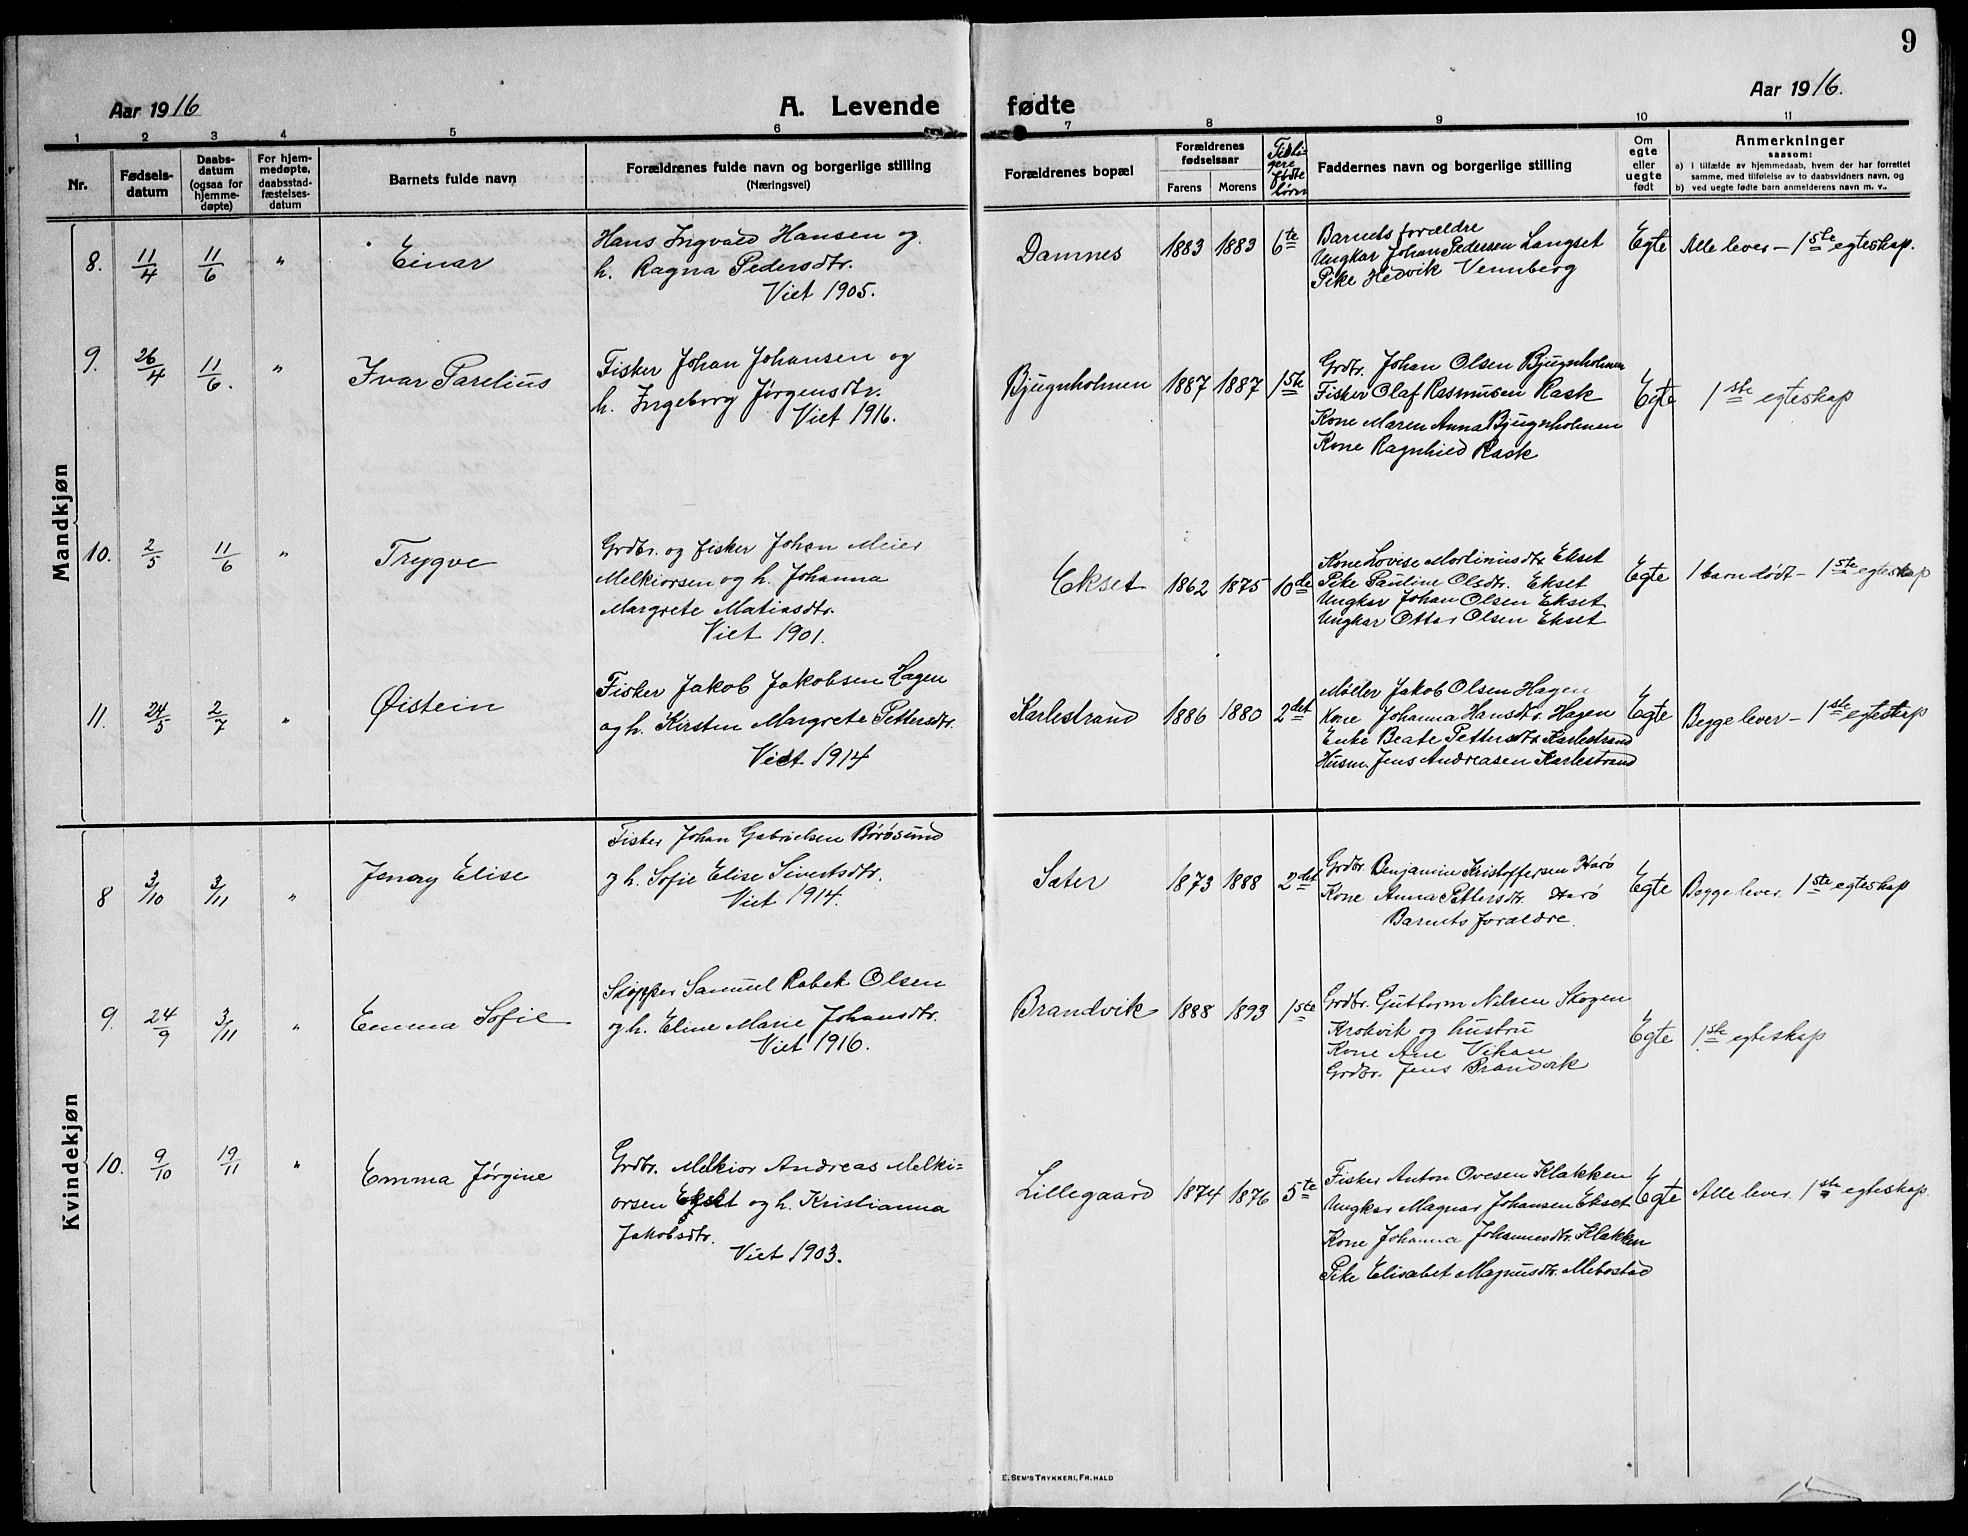 9
Aar 1916
A. Levende fødte
Aar 1916.
1 2 3 4 5 6 7 8 9 10 11
Nr.
Fødsels-
datum
Daabs-
datum
(ogsaa for
hjemme-
døpte)
For hjem-
medøpte,
daabsstad-
fæstelses-
datum
Barnets fulde navn
Forældrenes fulde navn og borgerlige stilling
(Næringsvei)
Forældrenes bopæl
Forældrenes
fødselsaar
Farens
Morens
Tidli-
gere
fødte
børn
Faddernes navn og borgerlige stilling
Om
egte
eller
uegte
født
Anmerkninger
saasom:
a) i tilfælde av hjemmedaab, hvem der har forrettet
samme, med tilføielse av to daabsvidners navn, og
b) ved uegte fødte barn anmelderens navn m. v.
Mandkjøn
8. 11/4 11/6 " Einar
Hans Ingvald Hansen og
h. Ragna Pedersdtr.
Viet 1905.
Damnes 1883 1883 6te
Barnets forældre
Ungkar Johan Pedersen Langset
Pike Hedvik Vennberg
Egte Alle lever – 1ste egteskap.
9. 26/4 11/6. " Ivar Parelius
Fisker Johan Johansen og
h. Ingeborg Jørgensdtr.
Viet 1916.
Bjugnholmen 1887 1887 1ste
Grdbr. Johan Olsen Bjugnholmen
Fisker Olaf Rasmusen Rask
Kone Maren Anna Bjugnholmen
Kone Ragnhild Rask
Egte 1ste egteskap
10. 2/5 11/6 " Trygve
Grdbr. og fisker Johan Meier
Melkiorsen og h. Johanna
Margrete Matiasdtr.
Viet 1901.
Ekset 1862 1875 10de
Kone Lovise Mortinusdtr. Ekset
Pike Pauline Olsdtr. Ekset
Ungkar Johan Olsen Ekset
Ungkar Ottar Olsen Ekset
Egte 1 barn dødt – 1ste egteskap
11. 24/5 2/7 " Øistein
Fisker Jakob Jakobsen Hagen
og h. Kirsten Margrete Pettersdtr.
Viet 1914
Karlestrand 1886 1880 2det
Møller Jakob Olsen Hagen
Kone Johanna Hansdtr. Hagen
Enke Beate Pettersdtr. Karlestrand
Husm. Jens Andreasen Karlestrand
Egte Begge lever – 1ste egteskap
Kvindekjøn
8 3/10 3/11 " Jenny Elise
Fisker Johan Gabrielsen Børøsund
og h. Sofie Elise Sivertsdtr.
Viet 1914.
Sæter 1873 1888 2det
Grdbr. Benjamin Kristoffersen Harø
Kone Anna Pettersdtr. Harø
Barnets forældre.
Egte Begge lever. 1ste egteskap
9. 24/9 3/11 " Emma Sofie
Skipper Samuel Robek Olsen
og h. Eline Marie Johansdtr.
Viet 1916.
Brandvik 1888 1893 1ste
Grdbr. Guttorm Nilsen Skogen
Krokvik og hustru
Kone Ane Vikan
Grdbr. Jens Brandvik
Egte 1ste egteskap
10. 9/10 19/11 " Emma Jørgine
Grdbr. Melkior Andreas Melki=
orsen Ekset og h. Kristianna
Jakobsdtr.
Viet 1903.
Lillegaard 1874 1876 5te
Fisker Anton Ovesen Klakken
Ungkar Magnar Johansen Ekset
Kone Johanna Johannesdtr. Klakken
Pike Elisabet Magnusdtr. Mebostad
Egte Alle lever. 1ste egteskap.
E. SEM'S TRYKKERI, FR. HALD